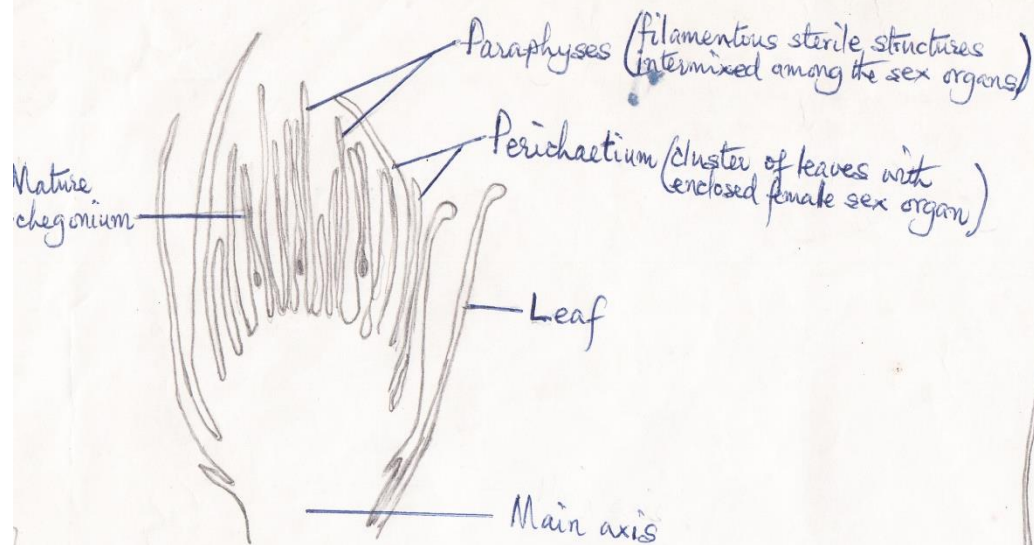 Paraphyses (filamentous sterile structures
intermixed among the sex organs)
Perichaetium (cluster of leaves with
enclosed female sex organ)
Mature
chegonium
Leaf
Main axis